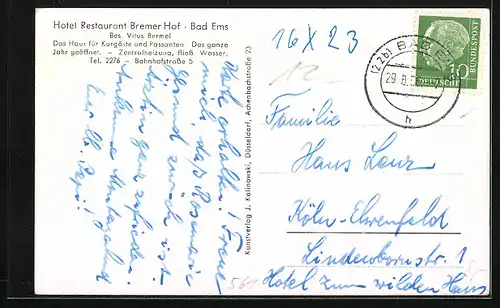 Hotel Restaurant Bremer Hof · Bad Ems
Bes. Vitus Bermel
Das Haus für Kurgäste und Passanten Das ganze
Jahr geöffnet. – Zentralheizung, fließ. Wasser.
Tel. 2276 – Bahnhofstraße 5
Karte erhalten! Freue
mich, daß Rosemarie
zurück ist
bin ganz zufrieden.
Ankomme
Kunstverlag J. Kalinowski, Düsseldorf, Achenbachstraße 23
16 X 23
(22b) BAD
29.8.
h
10
DEUTSCHE
BUNDESPOST
Familie
Hans Lenz
Köln-Ehrenfeld
Lindenbornstr. 1
Hotel zum wilden Hans
561